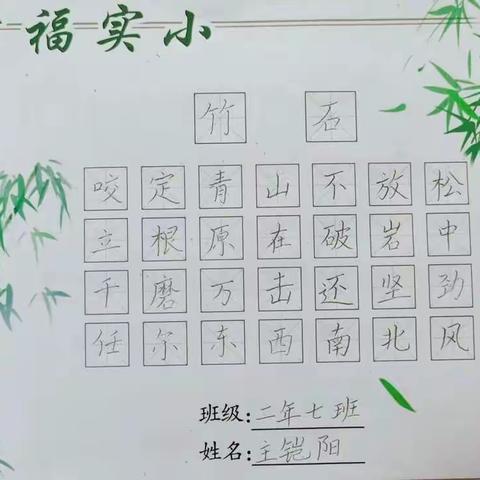 福实小
竹石
咬定青山不放松
立根原在破岩中
千磨万击还坚劲
任尔东西南北风
班级:二年七班
姓名:王铠阳